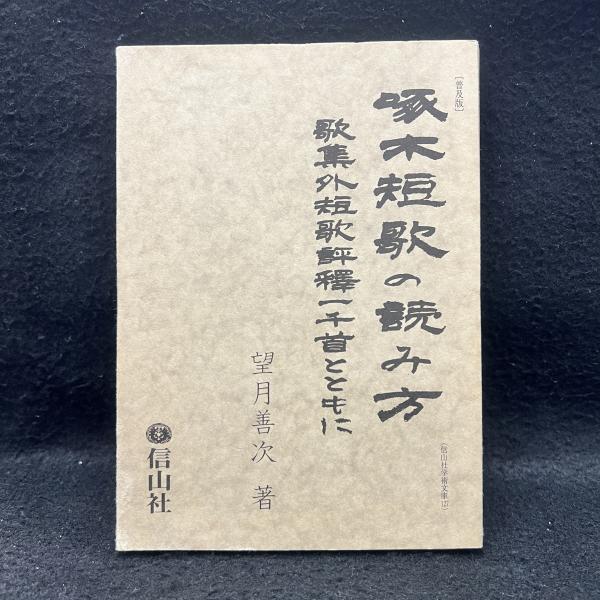 ［普及版］
啄木短歌の読み方
歌集外短歌評釋一千首とともに
望月善次 著
信山社